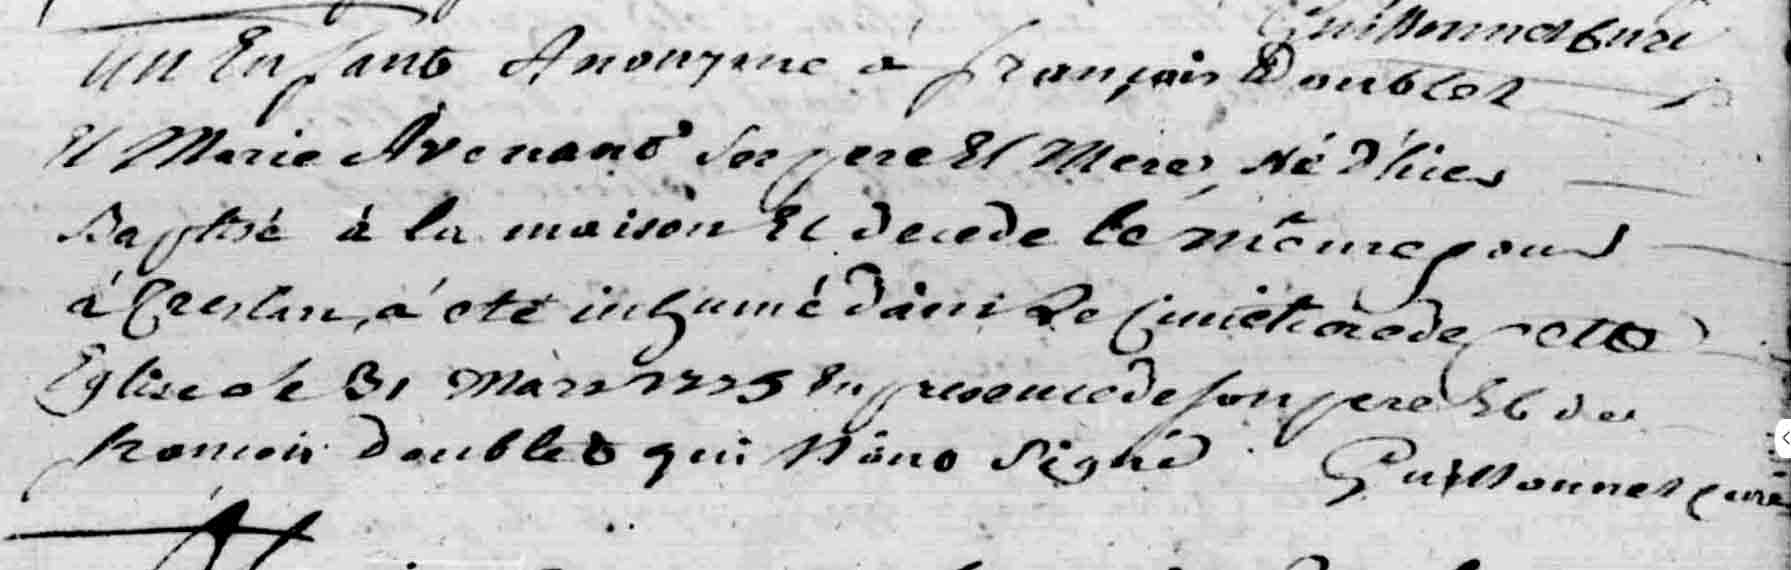 Guillonnet curé
un Enfant Anonyme à françois Doublet
Et Marie Avenant ses pere Et Mere, né d'hier
Baptisé à la maison Et decede le même jour
à Creslin, a été inhumé dans Le Cimetiere de cette
Eglise le 31 Mars 1775 En presence de son pere Et de
francois Doublet qui n'ont signé. Guillonnet curé